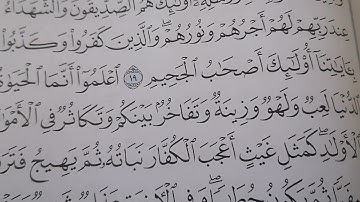 أُوْلَٰٓئِكَ هُمُ ٱلصِّدِّيقُونَۖ وَٱلشُّهَدَآءُ
عِندَ رَبِّهِمۡ لَهُمۡ أَجۡرُهُمۡ وَنُورُهُمۡۖ وَٱلَّذِينَ كَفَرُواْ وَكَذَّبُواْ
بِـَٔايَٰتِنَآ أُوْلَٰٓئِكَ أَصۡحَٰبُ ٱلۡجَحِيمِ ١٩ ٱعۡلَمُوٓاْ أَنَّمَا ٱلۡحَيَوٰةُ
ٱلدُّنۡيَا لَعِبٞ وَلَهۡوٞ وَزِينَةٞ وَتَفَاخُرُۢ بَيۡنَكُمۡ وَتَكَاثُرٞ فِي ٱلۡأَمۡوَٰلِ
وَٱلۡأَوۡلَٰدِۖ كَمَثَلِ غَيۡثٍ أَعۡجَبَ ٱلۡكُفَّارَ نَبَاتُهُۥ ثُمَّ يَهِيجُ فَتَرَ
ثُمَّ يَكُونُ حُطَٰمٗاۖ وَفِي ٱلۡأٓخِرَةِ